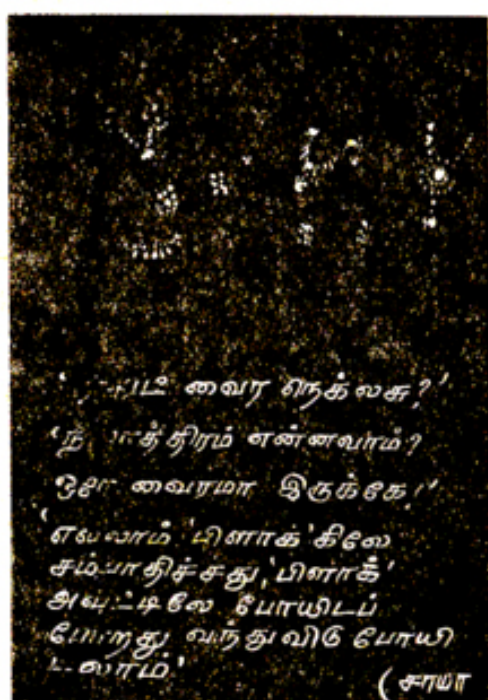 வைர நெக்லசு?'
என்னவாம்?
ஒரே வைரமா இருக்கே!'
'எல்லாம் 'பிளாக்'கிலே
சம்பாதிச்சது, 'பிளாக்'
அவுட்டிலே போயிடப்
போறது வந்துவிடு போயி
டலாம்'
(சாமா